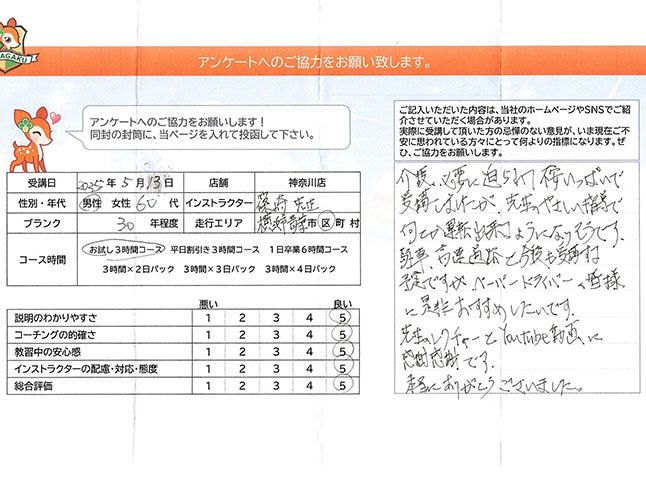 AGAKU
アンケートへのご協力をお願い致します。
アンケートへのご協力をお願いします!
同封の封筒に、当ページを入れて投函して下さい。
受講日 2025年 5月 13日 店舗 神奈川店
性別・年代 男性 女性 60 代 インストラクター 篠崎 先生
ブランク 30 年程度 走行エリア 横浜市 市 区 町 村
コース時間 お試し3時間コース 平日割引き3時間コース 1日卒業6時間コース
3時間×2日パック 3時間×3日パック 3時間×4日パック
悪い 良い
説明のわかりやすさ 1 2 3 4 5
コーチングの的確さ 1 2 3 4 5
教習中の安心感 1 2 3 4 5
インストラクターの配慮・対応・態度 1 2 3 4 5
総合評価 1 2 3 4 5
ご記入いただいた内容は、当社のホームページやSNSでご紹
介させていただく場合があります。
実際に受講して頂いた方の忌憚のない意見が、いま現在ご不
安に思われている方々にとって何よりの指標になります。ぜ
ひ、ご協力をお願いします。
介護の必要に迫られて 不安いっぱいで
受講しましたが、先生のやさしい指導で
何とか運転出来るようになりそうです。
駐車、高速道路と今後も受講する
予定ですが、ペーパードライバーの皆様
に是非おすすめしたいです。
先生のレクチャーとYoutube動画に
感謝感謝です。
本当にありがとうございました。